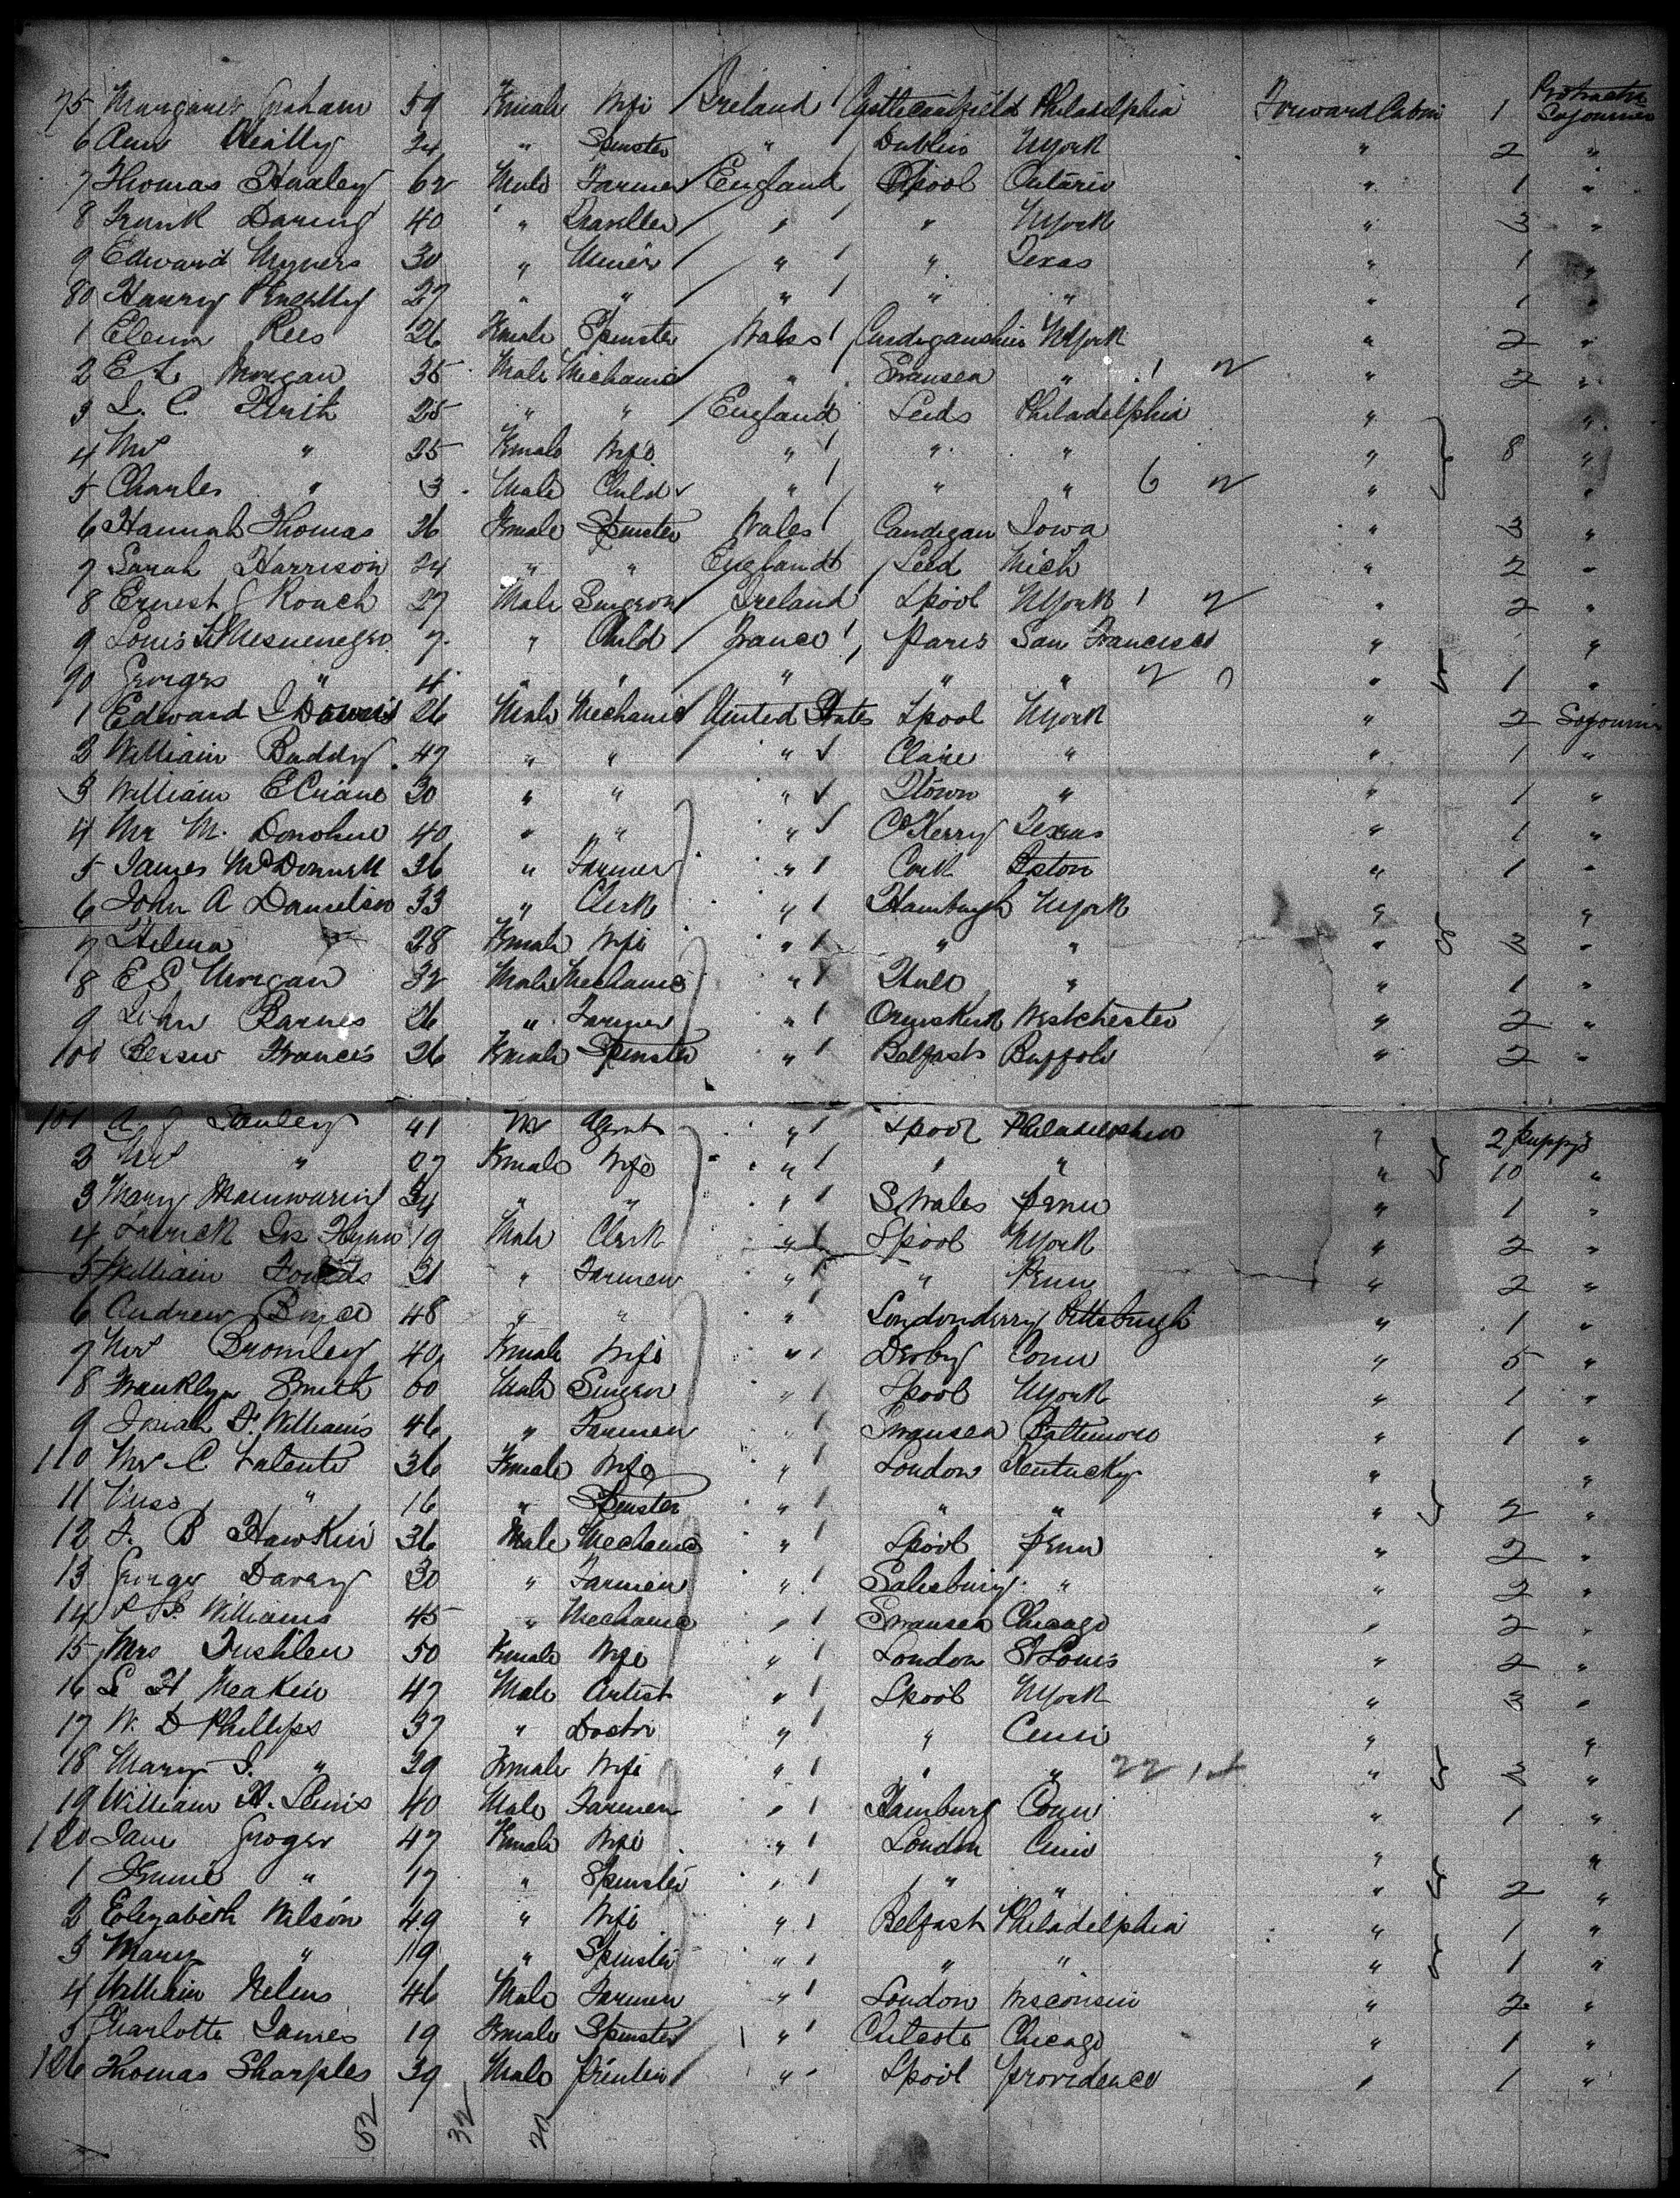 75 Margaret Graham 59 Female Wife Ireland Castlecaulfield Philadelphia Forward Cabin 1 Protracted Sojourner
6 Ann Reilly 24 " Spinster " Dublin NYork " 2 "
7 Thomas Huxley 62 Male Farmer England Lpool Ontario " 1 "
8 Frank Daring 40 " Traveller " " NYork " 3 "
9 Edward Myners 30 " Miner " " Texas " 1 "
80 Harry 27 " " " " " " 1 "
1 Elenor Rees 26 Female Spinster Wales Cardiganshire NYork " 2 "
2 E L Morgan 35 Male Mechanic " Swansea " 1 2 " 2 "
3 L. C. Firth 25 " " England Leeds Philadelphia " "
4 Mrs " 25 Female Wife " " " " 8 "
5 Charles " 3 Male Child " " " 6 2 " "
6 Hannah Thomas 26 Female Spinster Wales Cardigan Iowa " 3 "
7 Sarah Harrison 24 " " England Leed Mich " 2 "
8 Ernest Roach 27 Male Surgeon Ireland Lpool NYork 1 2 " 2 "
9 Louis 7 " Child France Paris San Francisco " "
90 Georges " 4 " " " " " 2 " 1 "
1 Edward J Downs 26 Male Mechanic United States Lpool NYork " 2 Sojourner
2 William Buddy 47 " " " Clare " " 1 "
3 William E Criane 30 " " " Qtown " " 1 "
4 Mr M. Donohue 40 " " " Co Kerry Texas " 1 "
5 James McDonnell 36 " Farmer " Cork Bston " 1 "
6 John A Danielson 33 " Clerk " Hamburgh NYork " "
7 Helena " 28 Female Wife " " " " 3 "
8 E S Morgan 32 Male Mechanic " Hull " " 1 "
9 John Barnes 26 " Farmer " Ormskirk Westchester " 2 "
100 Francis 26 Female Spinster " Belfast Buffalo " 2 "
101 A J Stanley 41 M Agent " Lpool Philadelphia " 2 puppys
2 Mrs " 27 Female Wife " " " " 10 "
3 Mary Mainwaring 34 " " " S Wales Penn " 1 "
4 Patrick Jos Flynn 19 Male Clerk " Lpool NYork " 2 "
5 William Foulds 31 " Farmer " " Penn " 2 "
6 Andrew Boyce 48 " " " Londonderry Pittsburgh " 1 "
7 Mrs Bromley 40 Female Wife " Derby Conn " 5 "
8 Franklyn Smith 60 Male Surgeon " Lpool NYork " 1 "
9 Josiah F. Williams 46 " Farmer " Swansea Baltimore " 1 "
110 Mrs C Latente 36 Female Wife " London Kentucky " "
11 Miss " 16 " Spinster " " " " 2 "
12 F. B Hawkin 36 Male Mechanic " Lpool Penn " 2 "
13 George Davey 30 " Farmer " Salesbury " " 2 "
14 Williams 45 " Mechanic " Swansea Chicago " 2 "
15 Mrs 50 Female Wife " London St Louis " 2 "
16 L H Meakin 47 Male Artist " Lpool NYork " 3 "
17 W. D Phillips 37 " Doctor " " Cinci " "
18 Mary J. " 29 Female Wife " " " " 3 "
19 William H. Lewis 40 Male Farmer " Hamburg Conn " 1 "
120 Jane Groger 47 Female Wife " London Cinci " "
1 " 17 " Spinster " " " " 2 "
2 Elizabeth Wilson 49 " Wife " Belfast Philadelphia " 1 "
3 Mary " 19 " Spinster " " " " 1 "
4 William Helms 46 Male Farmer " London Wisconsin " 2 "
5 Charlotte James 19 Female Spinster " Chicago " 1 "
126 Thomas Sharples 39 Male Printer " Lpool Providence " 1 "
52 32 20